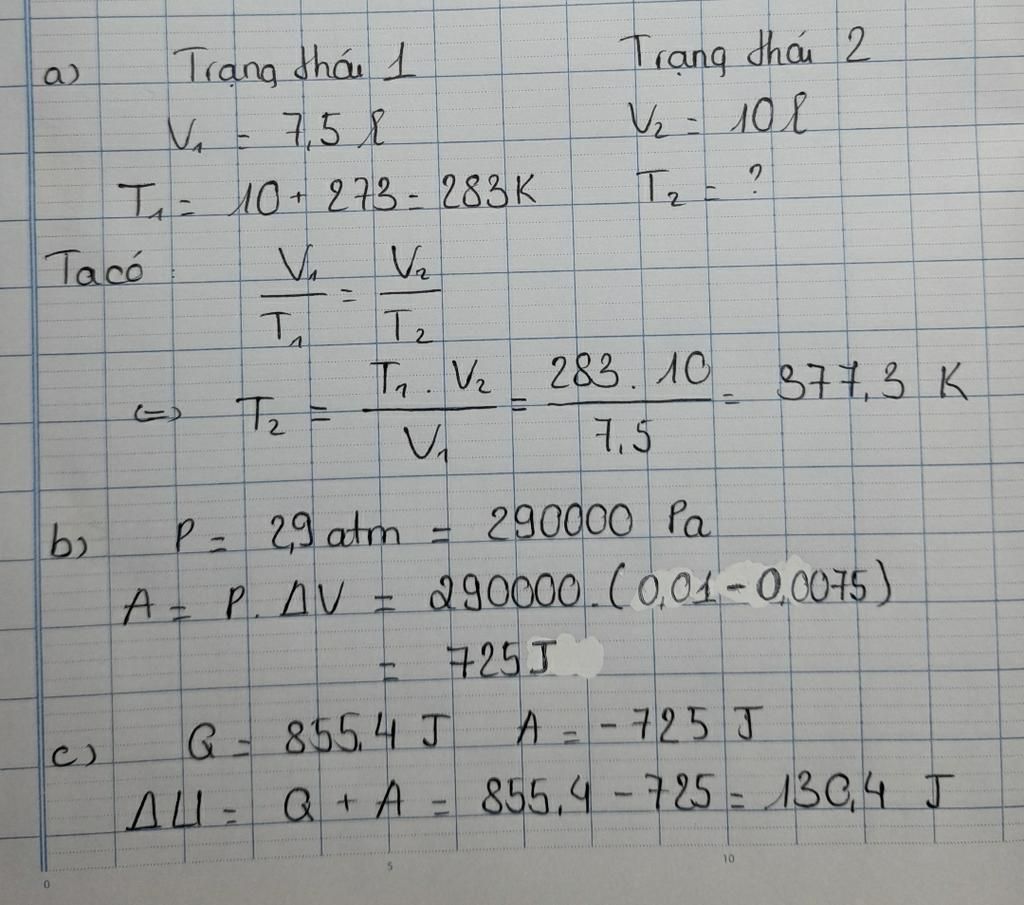 a) Trạng thái 1 Trạng thái 2
V₁ = 7,5 l V₂ = 10 l
T₁ = 10 + 273 = 283K T₂ = ?
Ta có : V₁/T₁ = V₂/T₂
<=> T₂ = T₁ . V₂ / V₁ = 283 . 10 / 7,5 = 377,3 K
b) P = 2,9 atm = 290000 Pa
A = P. ΔV = 290000. (0,01 - 0,0075)
= 725 J
c) Q = 855,4 J A = - 725 J
ΔU = Q + A = 855,4 - 725 = 130,4 J
0 5 10